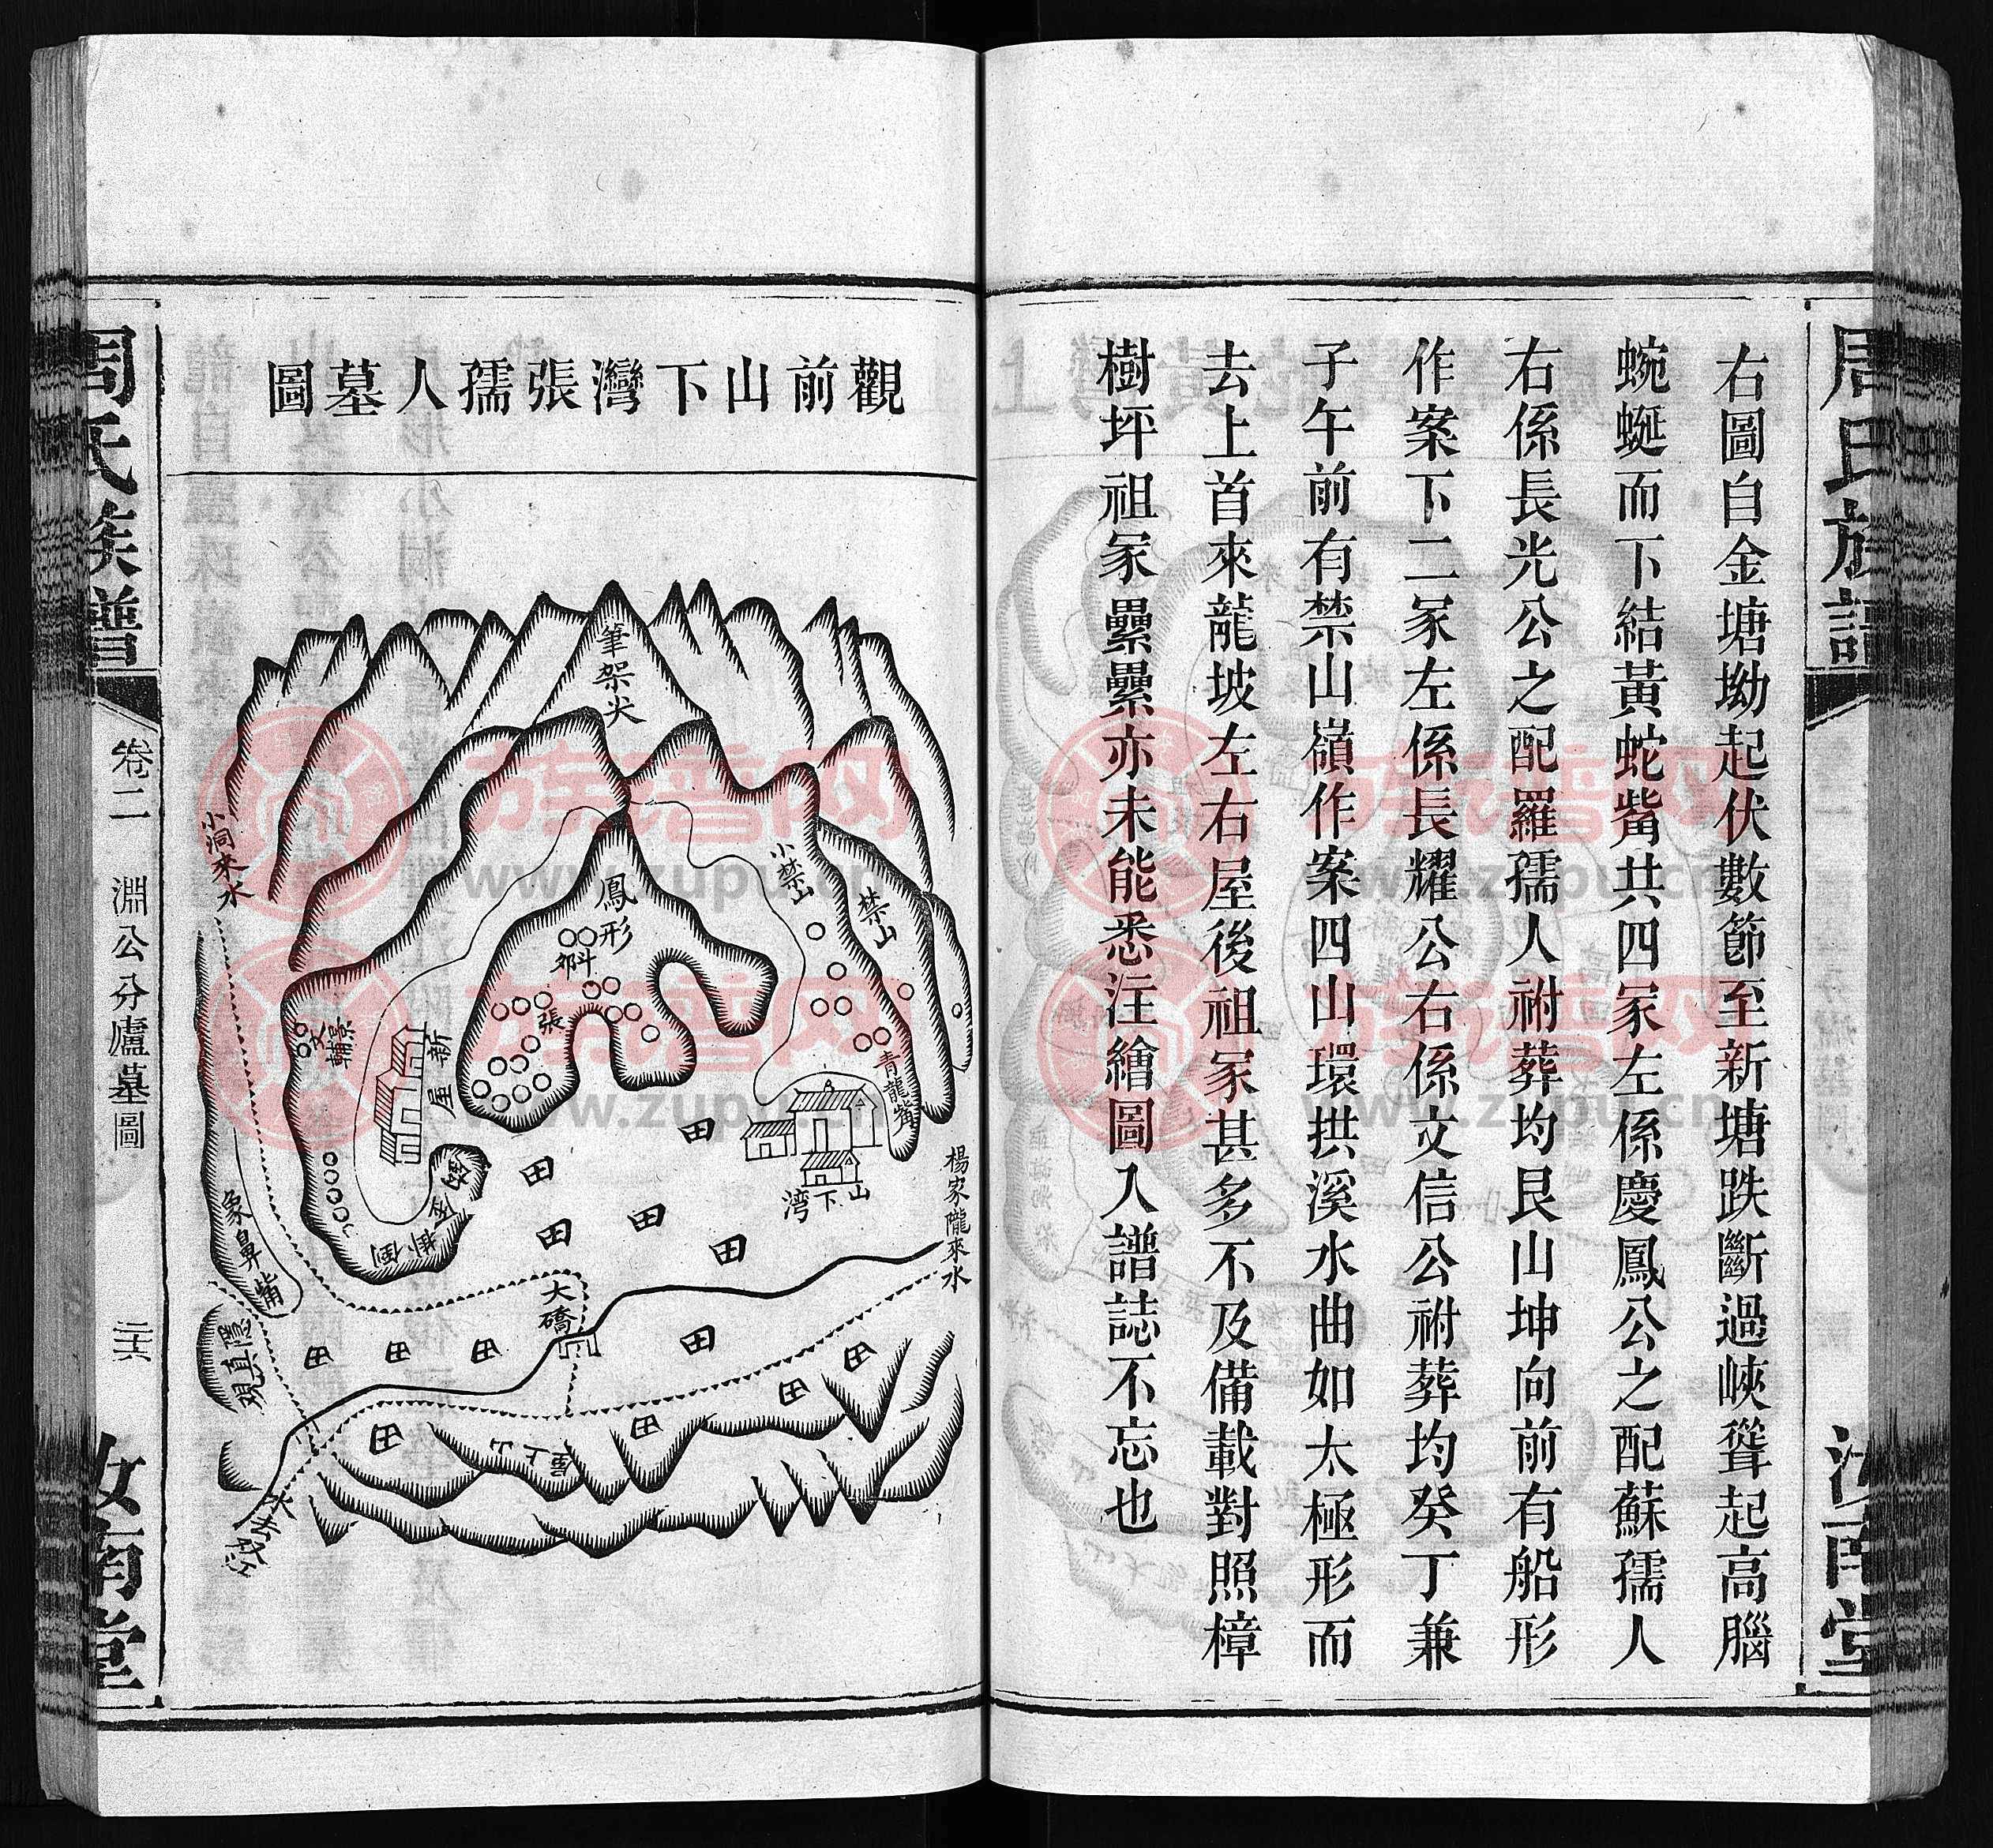 周氏族譜
汝南堂
右圖自金塘坳起伏數節至新塘跌斷過峽聳起高腦
蜿蜒而下結黃蛇觜共四冢左係慶鳳公之配蘇孺人
右係長光公之配羅孺人祔葬均艮山坤向前有船形
作案下二冢左係長耀公右係文信公祔葬均癸丁兼
子午前有禁山嶺作案四山環拱溪水曲如太極形而
去上首來龍坡左右屋後祖冢甚多不及備載對照樟
樹坪祖冢纍纍亦未能悉注繪圖入譜誌不忘也
觀前山下灣張孺人墓圖
筆架尖
小洞來水
鳳形
小禁山
禁山
斗
張
景
輔
文
新屋
青龍觜
山下湾
楊家隴來水
倒掛金
象鼻觜
大橋
隱真觀
田
田
田
田
田
田
田
田
田
田
田
田
田
田
水去
周氏族譜
卷二
淵公分廬墓圖
二十六
汝南堂
族谱网
www.zupu.cn
族谱网
www.zupu.cn
族谱网
www.zupu.cn
族谱网
www.zupu.cn